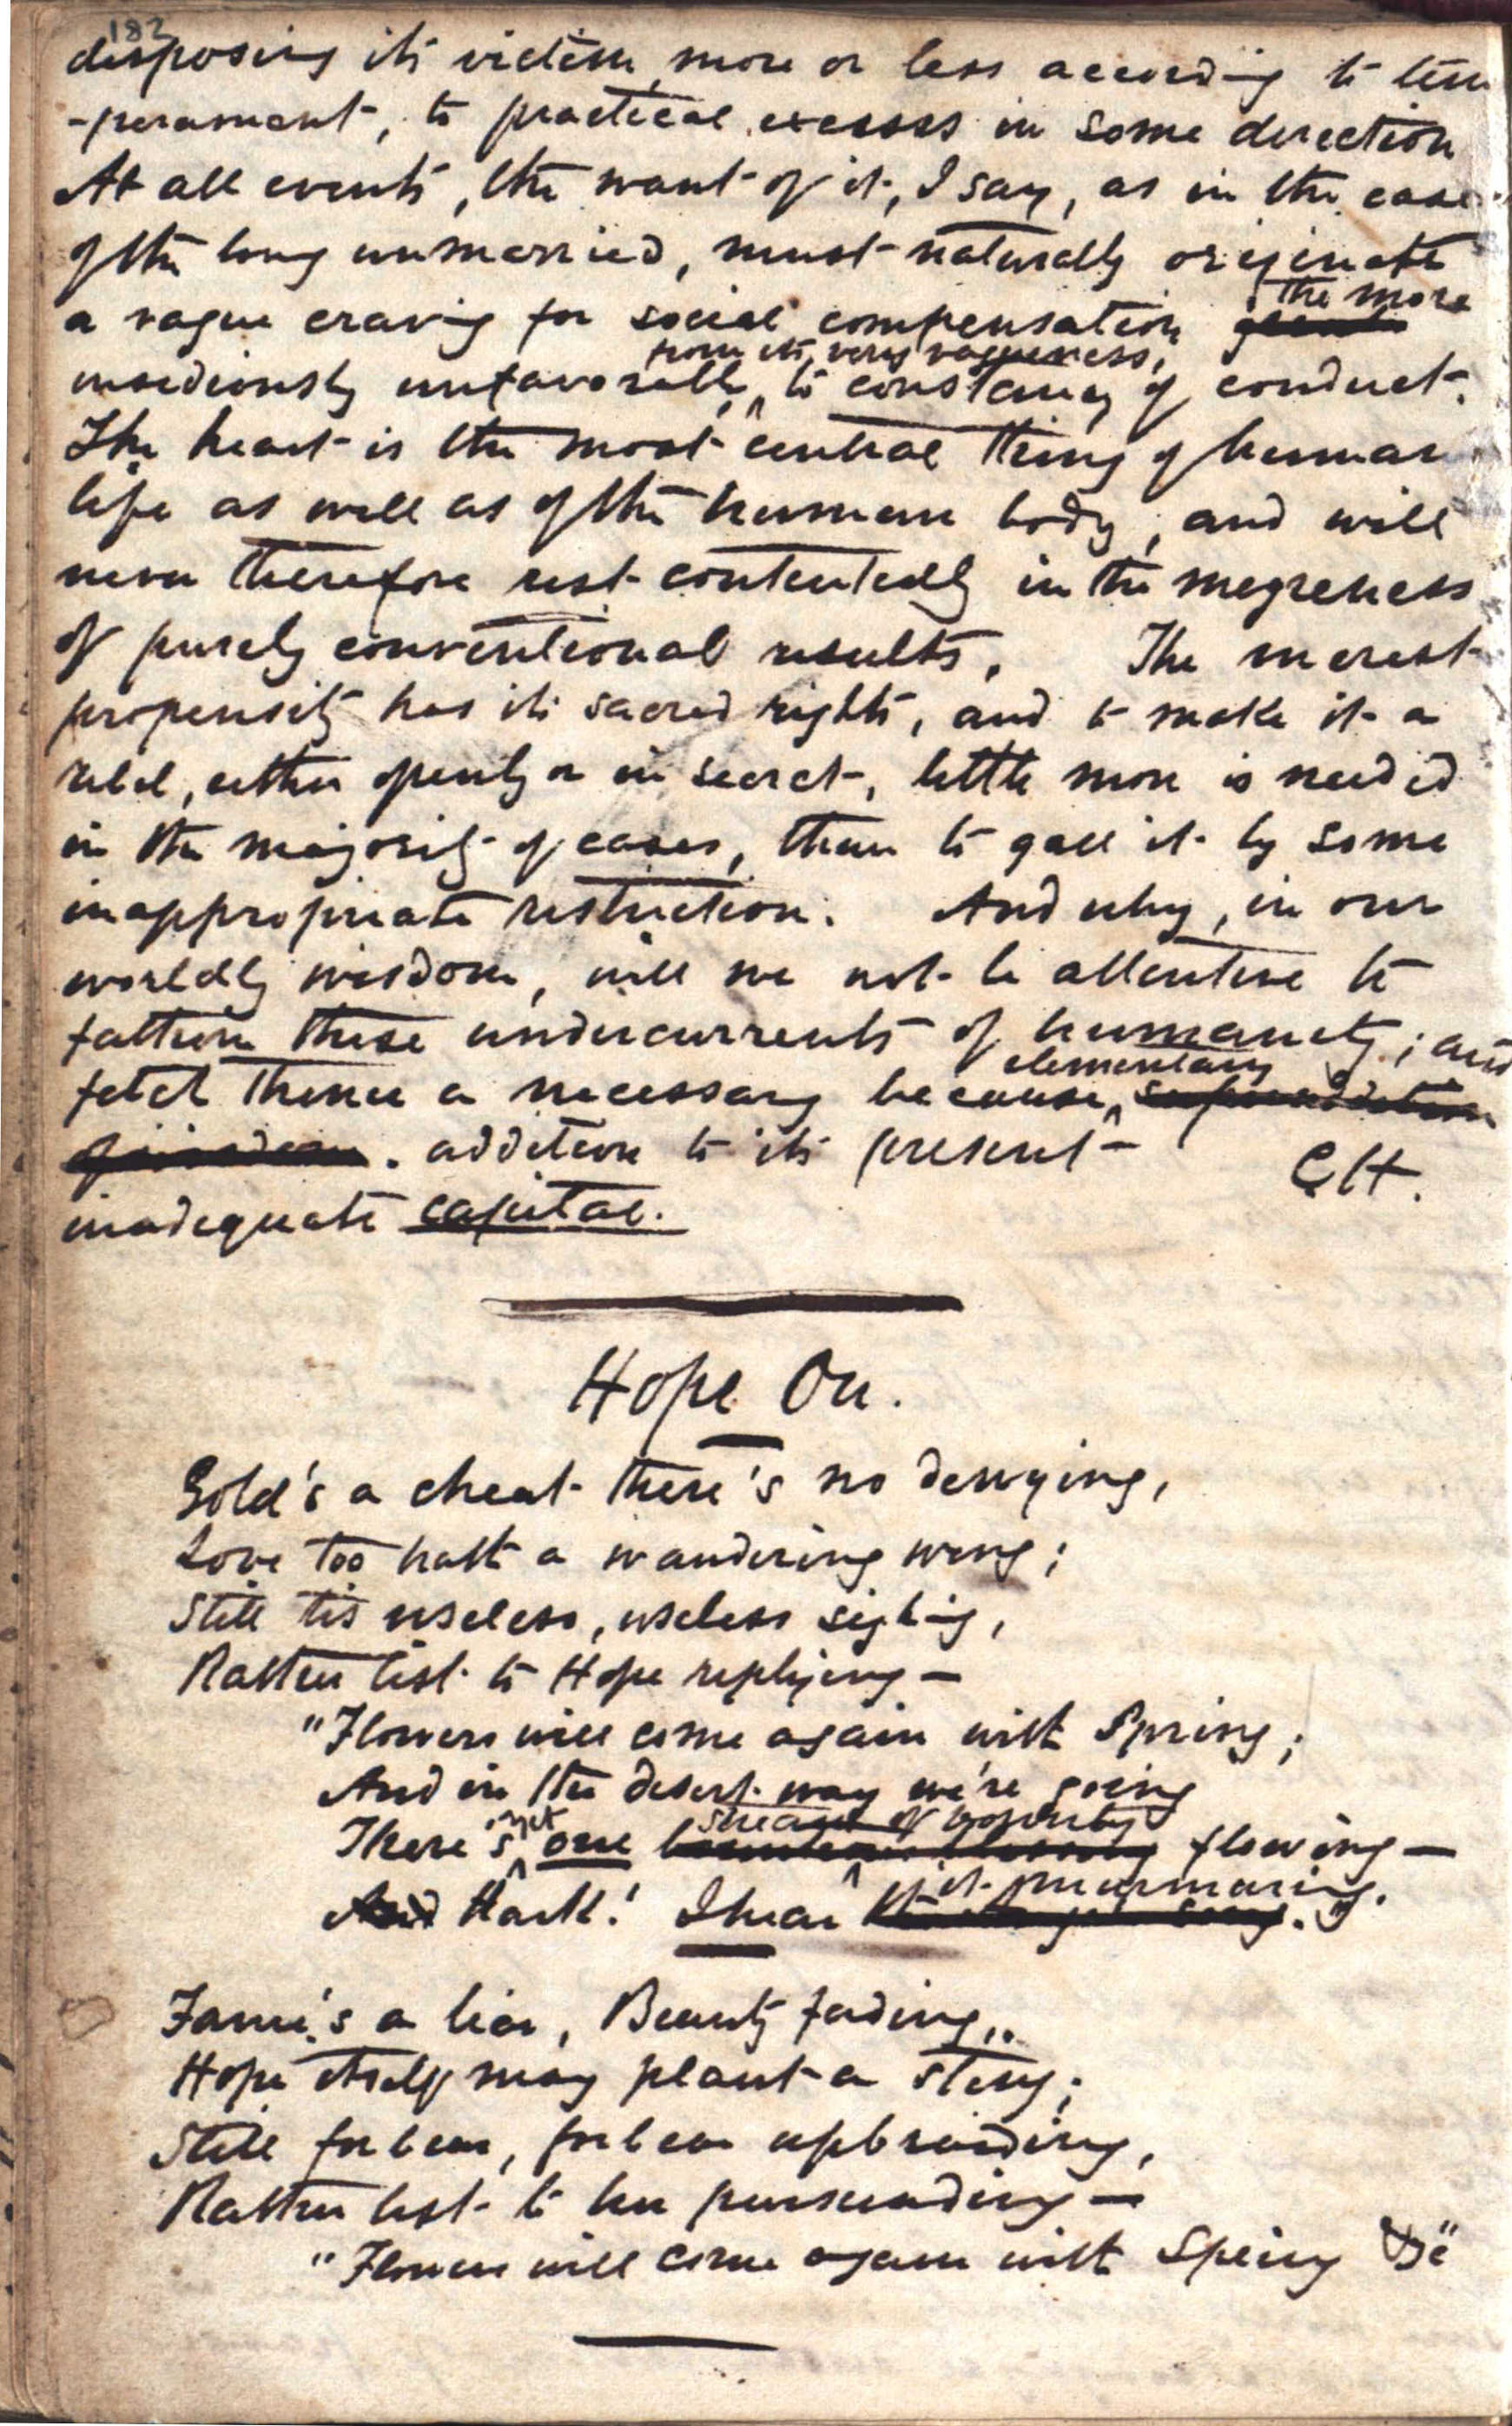 182
disposing its victim, more or less according to tem
-perament, to practical excesses in some direction
At all events, the want of it, I say, as in the case
of the long unmarried, must naturally originate
a vague craving for social compensation the more
insidiously unfavorable, from its very vagueness, to constancy of conduct.
The heart is the most central thing of human
life as well as of the human body, and will
never therefore rest contentedly in the megreness
of purely conventional results. The merest
propensity has its sacred rights, and to make it a
rebel, either openly or in secret, little more is needed
in the majority of cases, than to gall it by some
inappropriate restriction. And why, in our
worldly wisdom, will we not be attentive to
fathom these undercurrents of humanity; and
fetch thence a necessary because elementary
addition to its present
inadequate capital.
C H.
Hope On.
Gold's a cheat there's no denying,
Love too hath a wandering wing;
Still tis useless, useless sighing,
Rather list to Hope replying—
"Flowers will come again with Spring;
And in the desert way we're going
There's yet one stream of bounty flowing—
And Hark! I hear it murmuring."
Fame's a liar, Beauty fading,
Hope itself may plant a sting;
Still forbear, forbear upbraiding,
Rather list to her persuading—
"Flowers will come again with Spring &c"